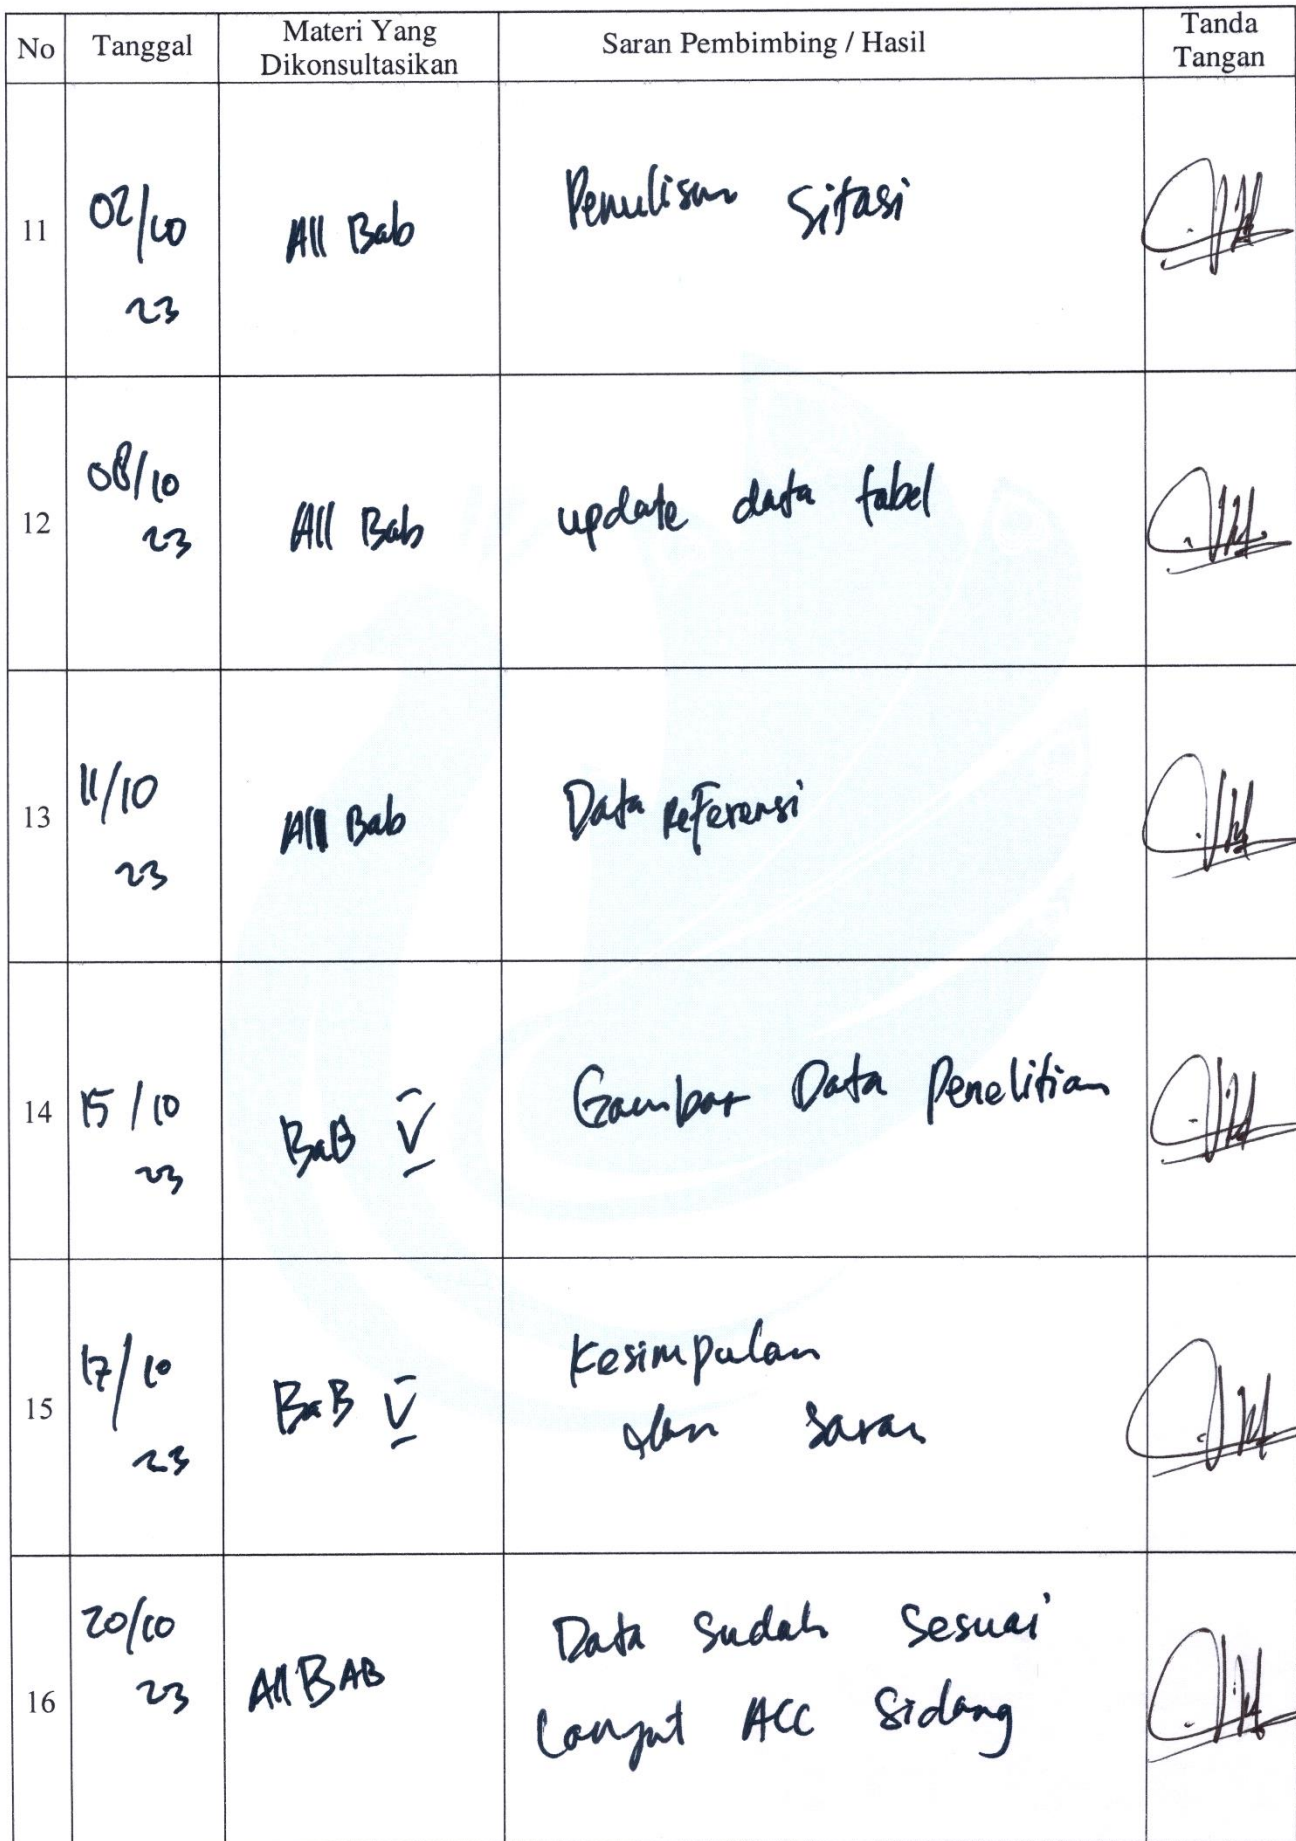 No Tanggal Materi Yang Dikonsultasikan Saran Pembimbing / Hasil Tanda Tangan
11 02/10 23 All Bab Penulisan Sitasi
12 08/10 23 All Bab update data tabel
13 11/10 23 All Bab Data Referensi
14 15/10 23 BaB V Gambar Data Penelitian
15 17/10 23 BaB V Kesimpulan
dan Saran
16 20/10 23 All BAB Data Sudah Sesuai
Lanjut ACC Sidang